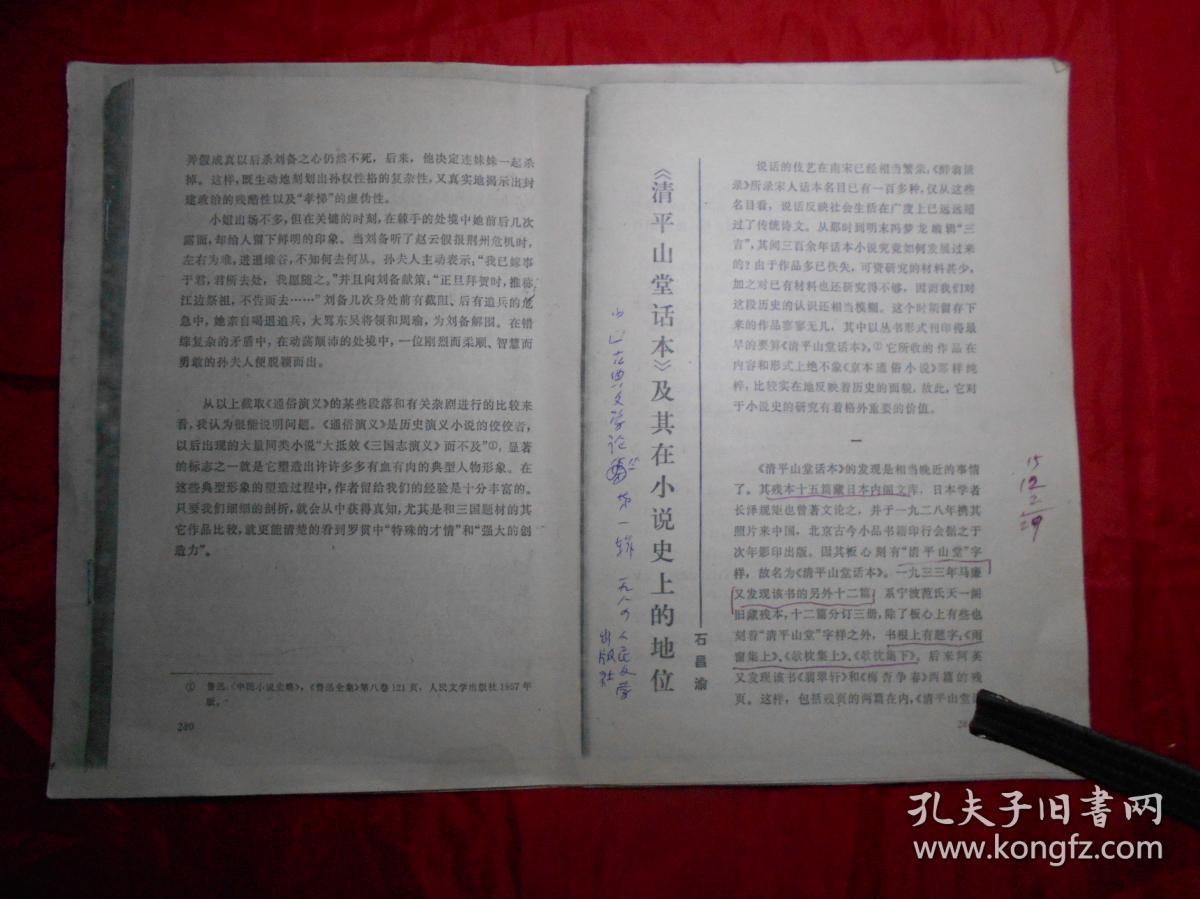 弄假成真以后杀刘备之心仍然不死，后来，他决定连妹妹一起杀
掉。这样，既生动地刻划出孙权性格的复杂性，又真实地揭示出封
建政治的残酷性以及“孝悌”的虚伪性。
小姐出场不多，但在关键的时刻，在棘手的处境中她前后几次
露面，却给人留下鲜明的印象。当刘备听了赵云假报荆州危机时，
左右为难，进退维谷，不知何去何从。孙夫人主动表示：“我已嫁事
于君，君所去处，我愿随之。”并且向刘备献策：“正旦拜贺时，推称
江边祭祖，不告而去……”刘备几次身处前有截阻、后有追兵的危
急中，她亲自喝退追兵，大骂东吴将领和周瑜，为刘备解围。在错
综复杂的矛盾中，在动荡颠沛的处境中，一位刚烈而柔顺、智慧而
勇敢的孙夫人便脱颖而出。
从以上截取《通俗演义》的某些段落和有关杂剧进行的比较来
看，我认为很能说明问题。《通俗演义》是历史演义小说的佼佼者，
以后出现的大量同类小说“大抵效《三国志演义》而不及”①，显著
的标志之一就是它塑造出许许多多有血有肉的典型人物形象。在
这些典型形象的塑造过程中，作者留给我们的经验是十分丰富的。
只要我们细细的剖析，就会从中获得真知，尤其是和三国题材的其
它作品比较，就更能清楚的看到罗贯中“特殊的才情”和“强大的创
造力”。
① 鲁迅：《中国小说史略》，《鲁迅全集》第八卷121页，人民文学出版社1957年
版。
240
《清平山堂话本》及其在小说史上的地位
石昌渝
古典文学论丛 第一辑 一九八〇 人民文学
出版社
说话的伎艺在南宋已经相当繁荣，《醉翁谈
录》所录宋人话本名目已有一百多种，仅从这些
名目看，说话反映社会生活在广度上已远远超
过了传统诗文。从那时到明末冯梦龙编辑“三
言”，其间三百余年话本小说究竟如何发展过来
的？由于作品多已佚失，可资研究的材料甚少，
加之对已有材料也还研究得不够，因而我们对
这段历史的认识还相当模糊。这个时期留存下
来的作品寥寥无几，其中以丛书形式刊印得最
早的要算《清平山堂话本》，①它所收的作品在
内容和形式上绝不象《京本通俗小说》那样纯
粹，比较实在地反映着历史的面貌。故此，它对
于小说史的研究有着格外重要的价值。
一
《清平山堂话本》的发现是相当晚近的事情
了。其残本十五篇藏日本内阁文库，日本学者
长泽规矩也曾著文论之，并于一九二八年携其
照片来中国，北京古今小品书籍印行会据之于
次年影印出版。因其板心刻有“清平山堂”字
样，故名为《清平山堂话本》。一九三三年马廉
又发现该书的另外十二篇，系宁波范氏天一阁
旧藏残本，十二篇分订三册，除了板心上有些也
刻着“清平山堂”字样之外，书根上有题字：《雨
窗集上》、《欹枕集上》、《欹枕集下》。后来阿英
又发现该书《翡翠轩》和《梅杏争春》两篇的残
页。这样，包括残页的两篇在内，《清平山堂话
15
12
2
29
孔夫子旧书网
www.kongfz.com